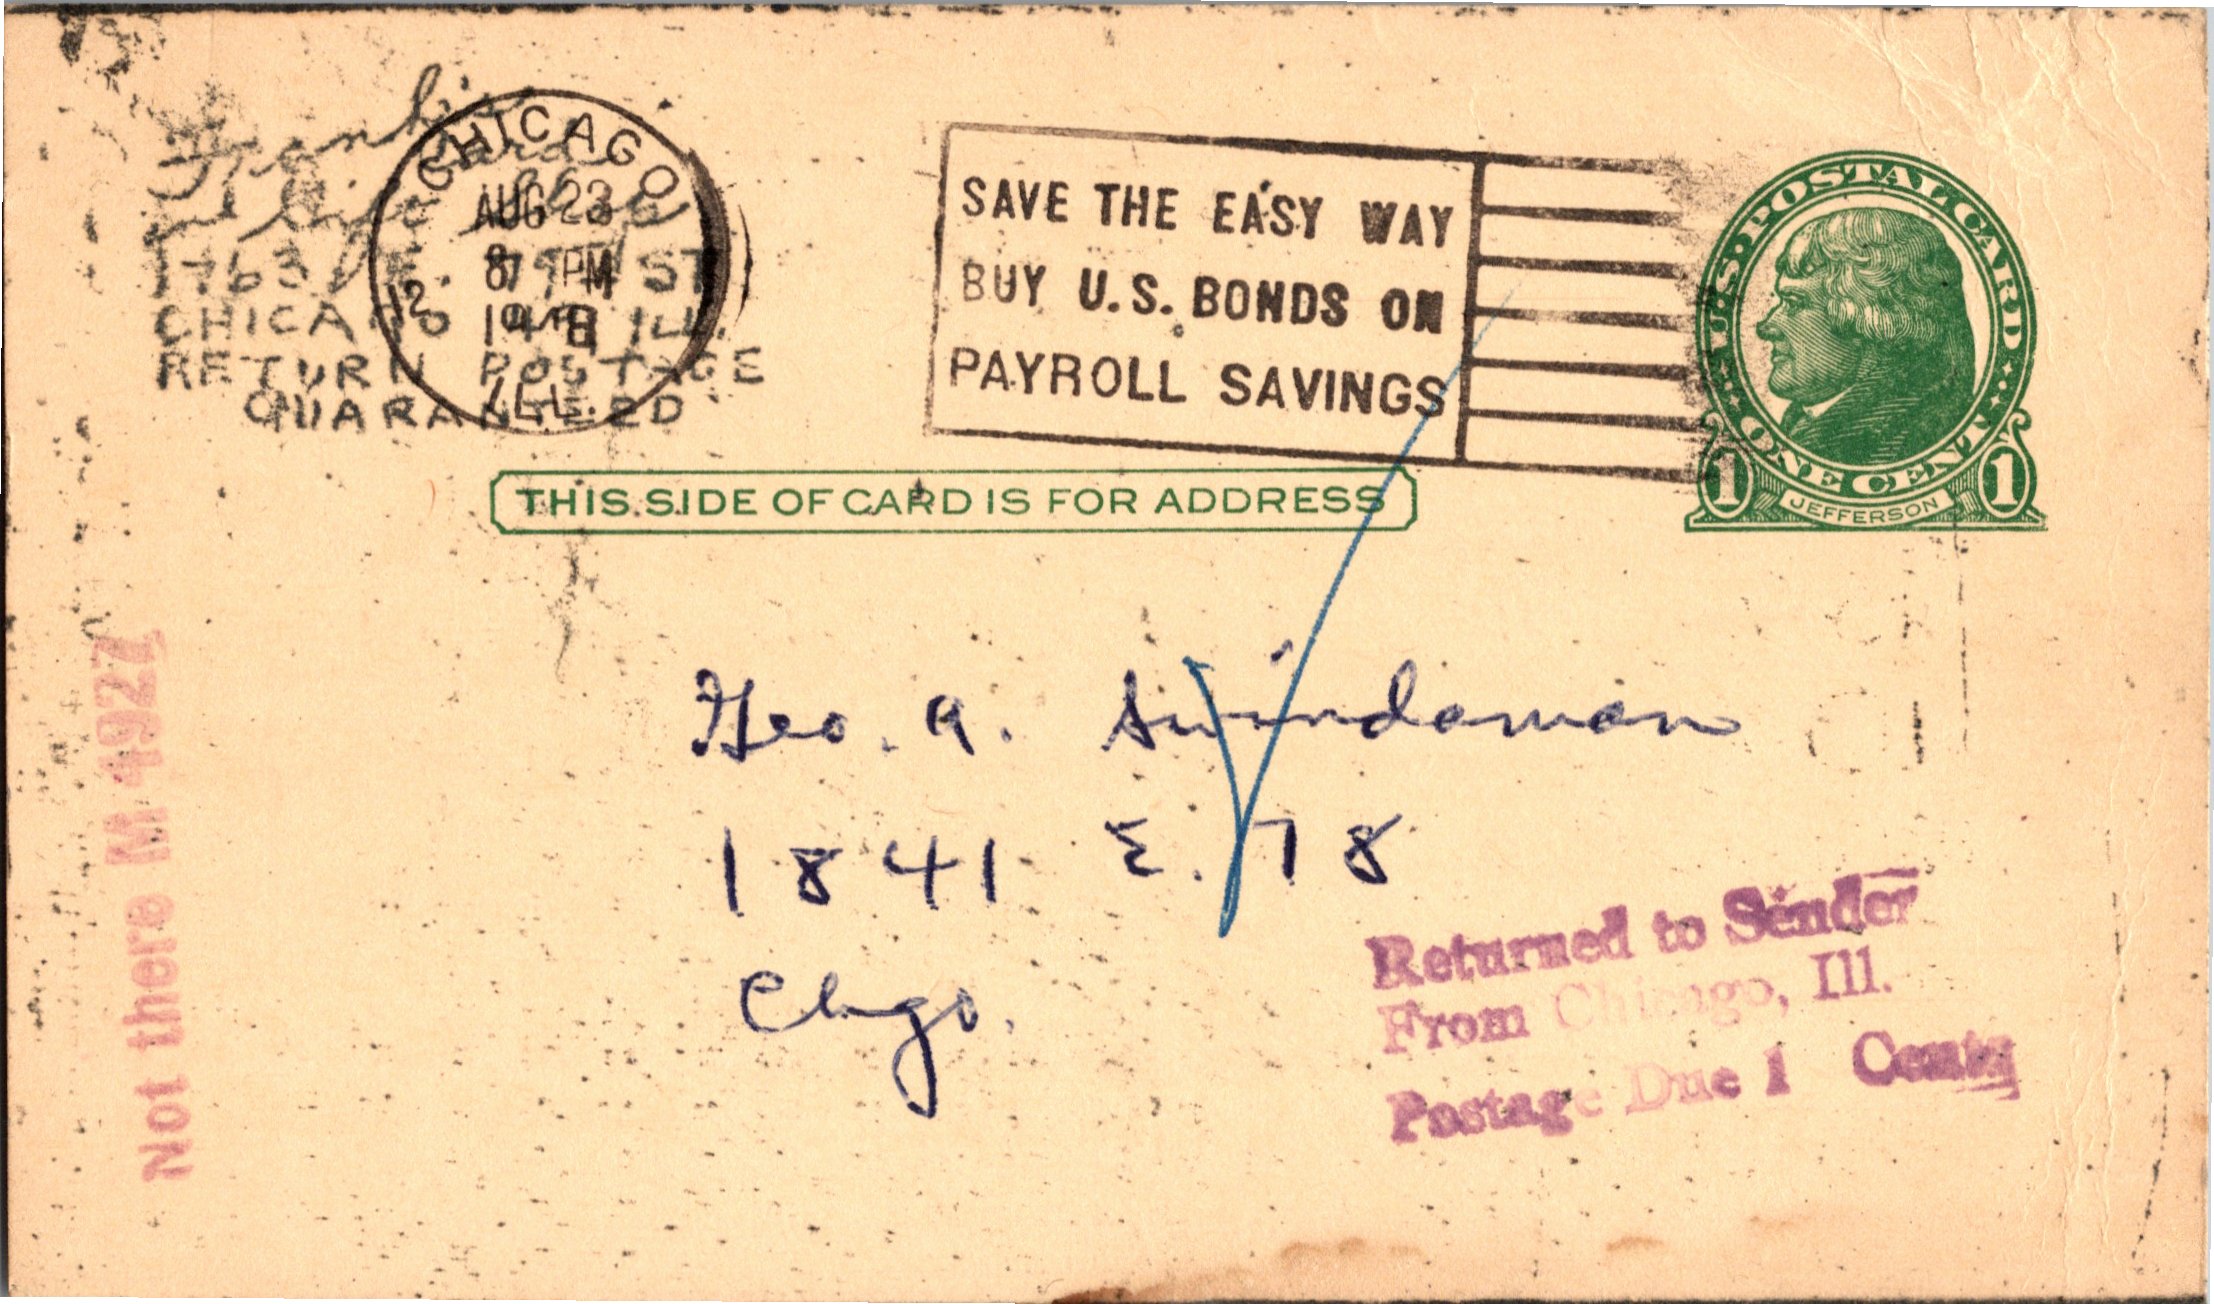 Frankie
1763 E. ST
CHICAGO ILL.
RETURN POSTAGE
GUARANTEED
CHICAGO
12
AUG 23
8 PM
ILL.
SAVE THE EASY WAY
BUY U.S. BONDS ON
PAYROLL SAVINGS
U.S. POSTAL CARD
ONE CENT
1 JEFFERSON 1
THIS SIDE OF CARD IS FOR ADDRESS
Geo. A. Swindaman
1841 E. 78
Chgo.
Not there M 4927
Returned to Sender
From Chicago, Ill.
Postage Due 1 Cents